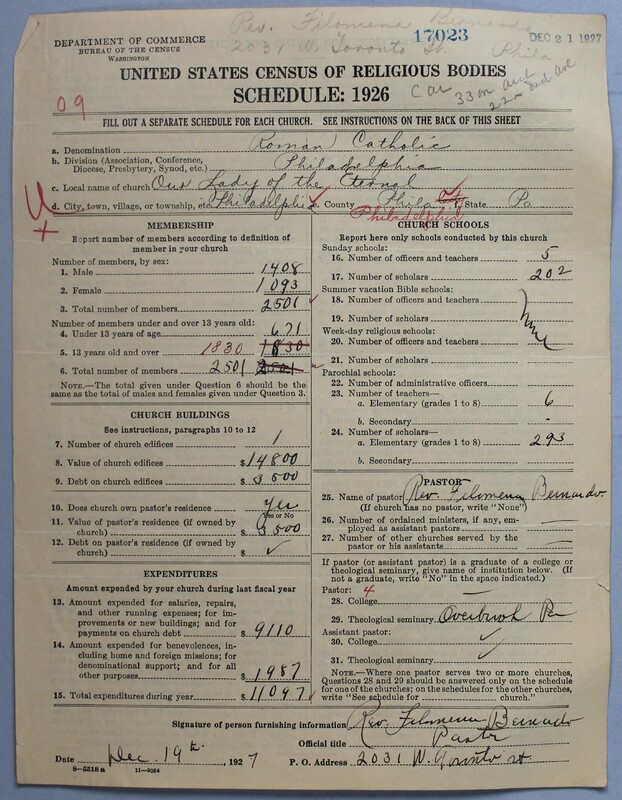 Rev. Filomena Bernardo
17023
DEC 21 1927
2031 W. Toronto St. Phila
DEPARTMENT OF COMMERCE
BUREAU OF THE CENSUS
WASHINGTON
UNITED STATES CENSUS OF RELIGIOUS BODIES
SCHEDULE: 1926
09
Car 33 on and
22nd
FILL OUT A SEPARATE SCHEDULE FOR EACH CHURCH. SEE INSTRUCTIONS ON THE BACK OF THIS SHEET
a. Denomination Roman Catholic
b. Division (Association, Conference, Diocese, Presbytery, Synod, etc.) Philadelphia
c. Local name of church Our Lady of the Eternal
d. City, town, village, or township, etc. Philadelphia County Phila State Pa
Philadelphia
MEMBERSHIP
Report number of members according to definition of
member in your church
Number of members, by sex:
1. Male 1408
2. Female 1093
3. Total number of members 2501
Number of members under and over 13 years old:
4. Under 13 years of age 671
5. 13 years old and over 1830 1830
6. Total number of members 2501 2501
NOTE.—The total given under Question 6 should be the
same as the total of males and females given under Question 3.
CHURCH BUILDINGS
See instructions, paragraphs 10 to 12
7. Number of church edifices 1
8. Value of church edifices $14800
9. Debt on church edifices $3500
10. Does church own pastor's residence yes
Yes or No
11. Value of pastor's residence (if owned by
church) $3500
12. Debt on pastor's residence (if owned by
church) $ ✓
EXPENDITURES
Amount expended by your church during last fiscal year
13. Amount expended for salaries, repairs,
and other running expenses; for im-
provements or new buildings; and for
payments on church debt $9110
14. Amount expended for benevolences, in-
cluding home and foreign missions; for
denominational support; and for all
other purposes 1987
15. Total expenditures during year $11097
CHURCH SCHOOLS
Report here only schools conducted by this church
Sunday schools:
16. Number of officers and teachers 5
17. Number of scholars 202
Summer vacation Bible schools:
18. Number of officers and teachers
19. Number of scholars
none
Week-day religious schools:
20. Number of officers and teachers
21. Number of scholars
Parochial schools:
22. Number of administrative officers
23. Number of teachers—
a. Elementary (grades 1 to 8) 6
b. Secondary -
24. Number of scholars—
a. Elementary (grades 1 to 8) 293
b. Secondary
PASTOR
25. Name of pastor Rev. Filomena Bernardo
(If church has no pastor, write "None")
26. Number of ordained ministers, if any, em-
ployed as assistant pastors —
27. Number of other churches served by the
pastor or his assistants —
If pastor (or assistant pastor) is a graduate of a college or
theological seminary, give name of institution below. (If
not a graduate, write "No" in the space indicated.)
Pastor: 4
28. College —
29. Theological seminary Overbrook Pa
Assistant pastor:
30. College ✓
31. Theological seminary ✓
NOTE.—Where one pastor serves two or more churches,
Questions 28 and 29 should be answered only on the schedule
for one of the churches; on the schedules for the other churches,
write "See schedule for church."
Signature of person furnishing information Rev. Filomena Bernardo
Official title Pastor
Date Dec. 19th, 1927 P. O. Address 2031 W. Toronto st
8—5518 a 11—9054